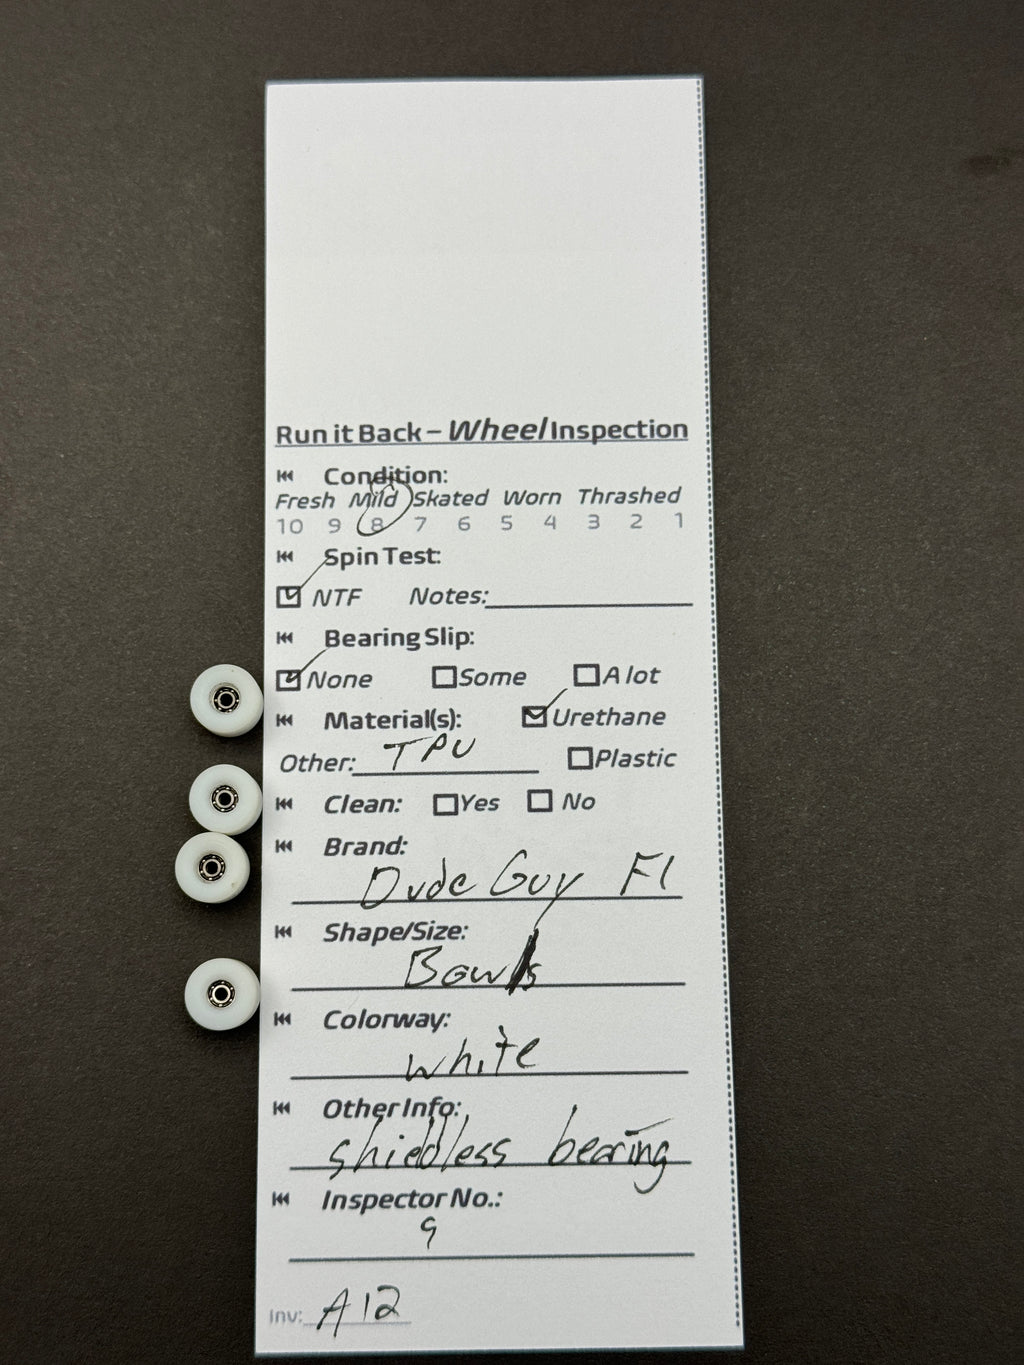 Run it Back – Wheel Inspection
Condition:
Fresh Mild Skated Worn Thrashed
10 9 8 7 6 5 4 3 2 1
Spin Test:
NTF Notes:
Bearing Slip:
None Some A lot
Material(s): Urethane
Other: TPU Plastic
Clean: Yes No
Brand:
Dude Guy F1
Shape/Size:
Bowls
Colorway:
white
Other Info:
shiedless bearing
Inspector No.:
9
Inv: A12